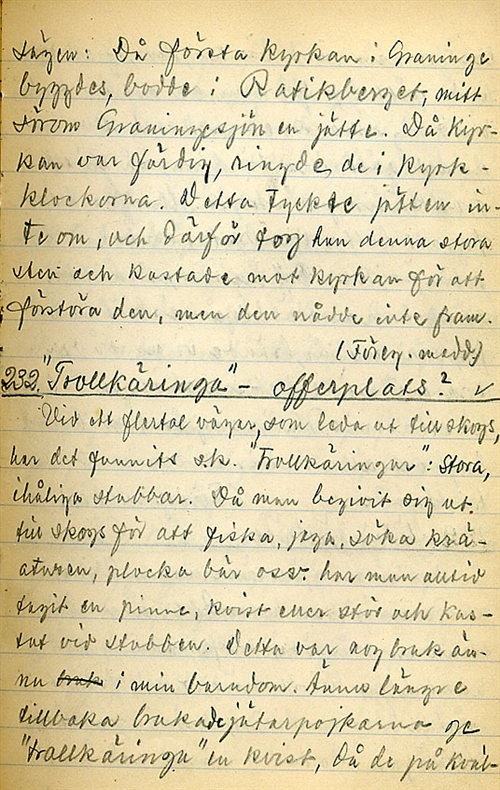 sägen: Då första kyrkan i Graninge
byggdes, bodde i Ratikberget, mitt
för om Graningesjön en jätte. Då kyr-
kan var färdig, ringde de i kyrk-
klockorna. Detta tyckte jätten in-
te om, och därför tog han denna stora
sten och kastade mot kyrkan för att
förstöra den, men den nådde inte fram.
(Föreg. medd)
232. "Trollkäringa" - offerplats? ✓
Vid ett flertal vägar, som leda ut till skogs,
har det funnits s.k. "Trollkäringar": Stora,
ihåliga stubbar. Då man begivit sig ut
till skogs för att fiska, jaga, söka krä-
aturen, plocka bär osv. har man alltid
tagit en pinne, kvist eller stör och kas-
tat vid stubben. Detta var nog bruk än-
nu i min barndom. Ännu längre
tillbaka brukade jätarpojkarna ge
"trollkäringa" en kvist, då de på kväl-